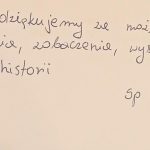 dziękujemy za moż
nie, zobaczenie, wys
historii
Sp